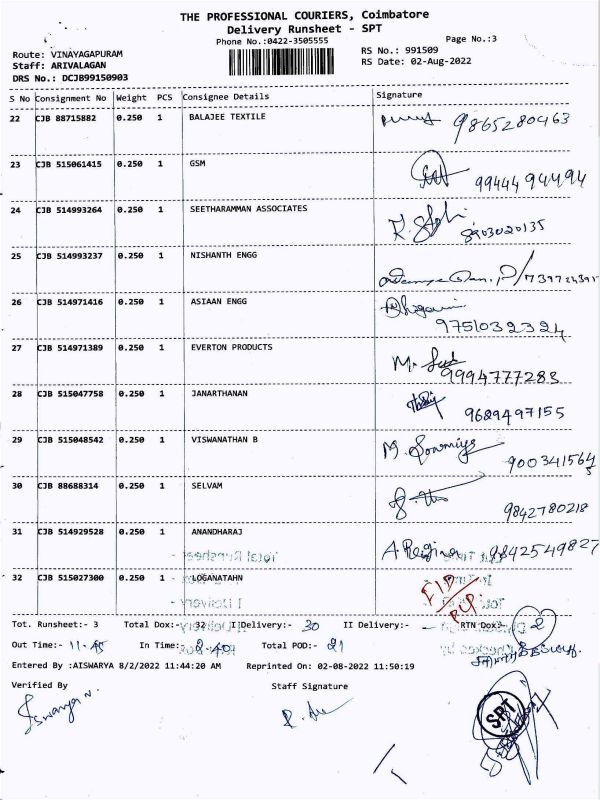 THE PROFESSIONAL COURIERS, Coimbatore
Delivery Runsheet - SPT
Phone No.:0422-3505555 Page No.:3
Route: VINAYAGAPURAM RS No.: 991509
Staff: ARIVALAGAN RS Date: 02-Aug-2022
DRS No.: DCJB99150903
S No Consignment No Weight PCS Consignee Details Signature
22 CJB 88715882 0.250 1 BALAJEE TEXTILE 9865280463
23 CJB 515061415 0.250 1 GSM 9944494494
24 CJB 514993264 0.250 1 SEETHARAMMAN ASSOCIATES 8903020135
25 CJB 514993237 0.250 1 NISHANTH ENGG
26 CJB 514971416 0.250 1 ASIAAN ENGG 9751032324
27 CJB 514971389 0.250 1 EVERTON PRODUCTS 9994777283
28 CJB 515047758 0.250 1 JANARTHANAN 9689497155
29 CJB 515048542 0.250 1 VISWANATHAN B M. Sowmiya 9003415645
30 CJB 88688314 0.250 1 SELVAM 9842780218
31 CJB 514929528 0.250 1 ANANDHARAJ A Regina 9842549827
Total Runsheet -
32 CJB 515027300 0.250 1 LOGANATAHN
I Delivery -
Tot. Runsheet:- 3 Total Dox:- 32 I Delivery:- 30 II Delivery:- - RTN Dox:- 2
Out Time:- 11.45 In Time:- 2.40 Total POD:- 21
Entered By :AISWARYA 8/2/2022 11:44:20 AM Reprinted On: 02-08-2022 11:50:19
Verified By Staff Signature
SPT